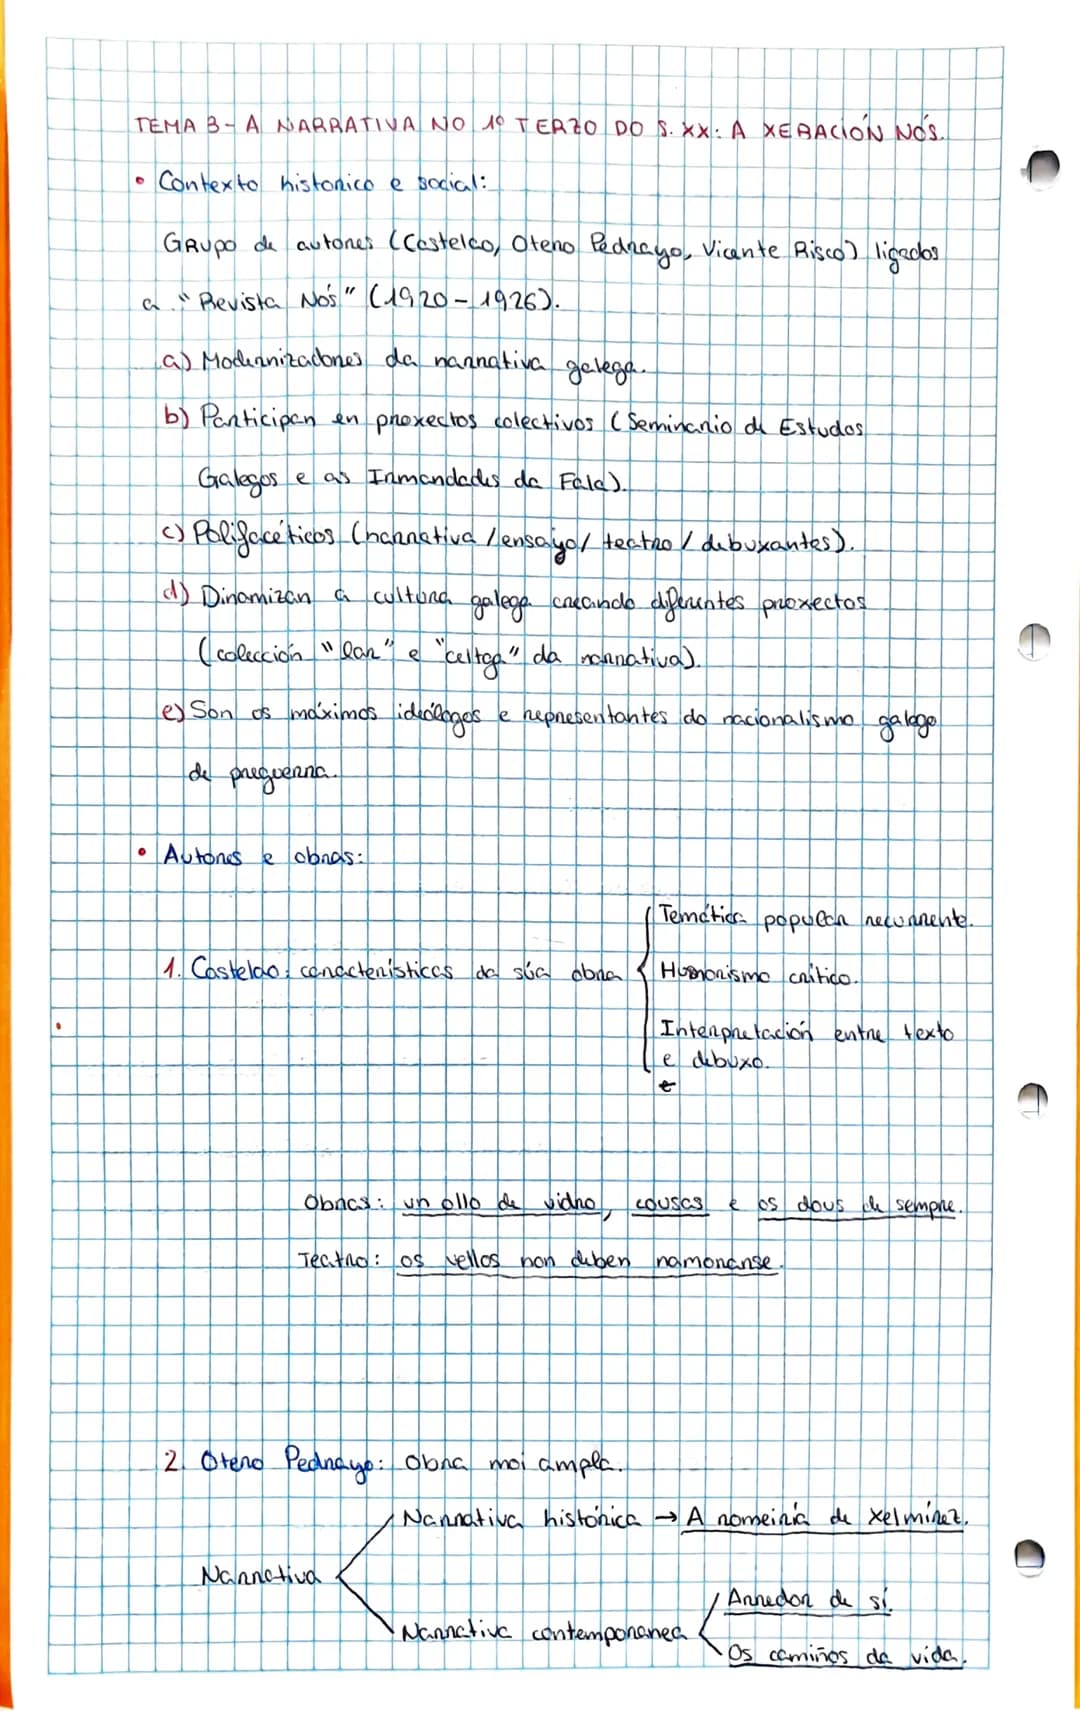 TEMA 3- A NARRATIVA NO 1º TERZO DO S. XX: A XERACIÓN NÓS.
• Contexto historico e social:
Grupo de autores (Castelao, Otero Pedrayo, Vicente Risco) ligados
a "Revista Nós" (1920-1926).
a) Modernizadores da narrativa galega.
b) Participan en proxectos colectivos (Seminario de Estudos
Galegos e as Irmandades da Fala).
c) Polifacéticos (narrativa /ensayo/ teatro / debuxantes).
d) Dinamizan a cultura galega creando diferentes proxectos
(colección "lar" e "celtga" da narrativa).
e) Son os máximos ideólogos e representantes do nacionalismo galego
de preguerra.
• Autores e obras:
Temática popular recurrente.
1. Castelao: características da súa obra
Humorismo crítico.
Interpretación entre texto
e debuxo.
e
Obras: un ollo de vidro, cousas e os dous de sempre.
Teatro: os vellos non deben namorarse.
2. Otero Pedrayo: Obra moi ampla.
Narrativa histórica → A romeiría de xelmírez.
Narrativa
Arredor de sí.
Narrativa contemporanea
Os camiños da vida.